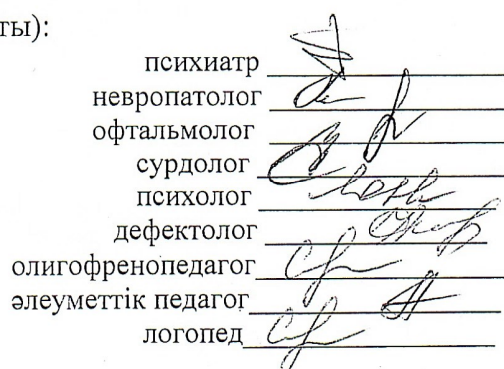 ты):
психиатр
невропатолог
офтальмолог
сурдолог
психолог
дефектолог
олигофренопедагог
әлеуметтік педагог
логопед